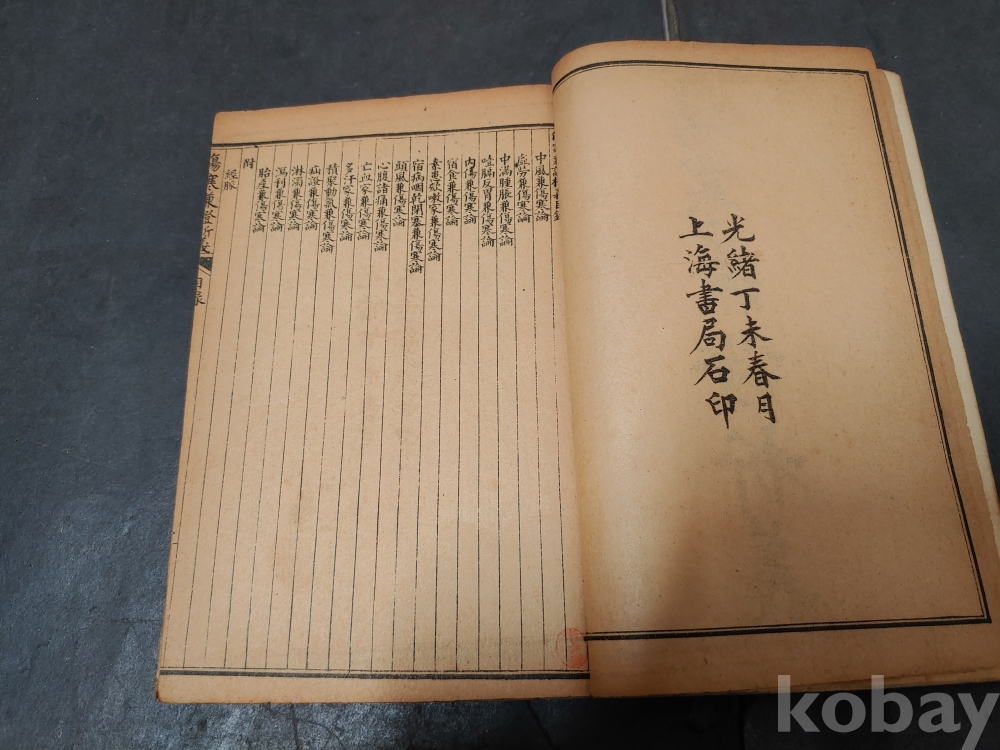 光緒丁未春月
上海書局石印
中風兼傷寒論
虛勞兼傷寒論
中滿腫脹兼傷寒論
噎膈反胃兼傷寒論
內傷兼傷寒論
宿食兼傷寒論
素患欬嗽家兼傷寒論
宿病咽乾閉塞兼傷寒論
頭風兼傷寒論
心腹諸痛兼傷寒論
亡血家兼傷寒論
多汗家兼傷寒論
積聚動氣兼傷寒論
疝證兼傷寒論
淋濁兼傷寒論
瀉利兼傷寒論
胎產兼傷寒論
附
經脈
傷寒兼證析義
目錄
kobay